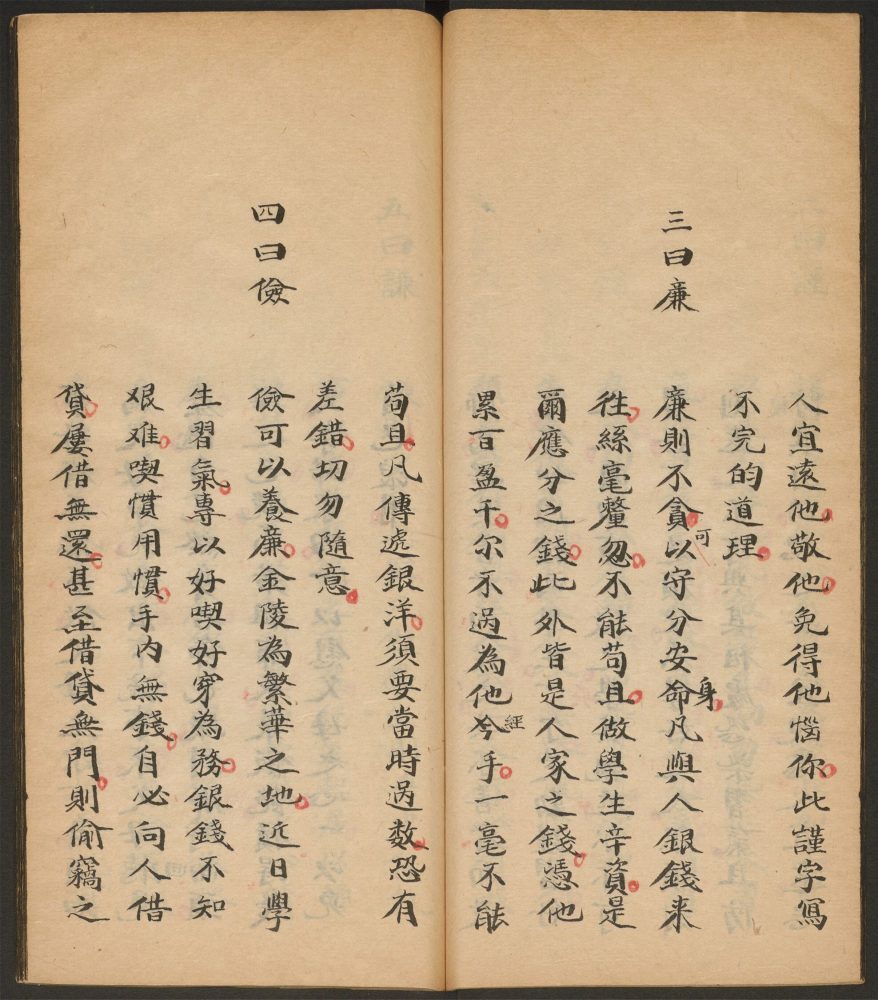 人宜遠他敬他免得他惱你此謹字寫
不完的道理
三曰廉
廉則不貪可以守分安身命凡與人銀錢来
徃絲毫釐忽不能苟且做學生辛資是
爾應分之錢此外皆是人家之錢憑他
累百盈千尔不過為他經今手一毫不能
苟且凡傳遞銀洋須要當時過数恐有
差錯切勿隨意
四曰儉
儉可以養廉金陵為繁華之地近日學
生習氣專以好喫好穿為務銀錢不知
艰难喫慣用慣手內無錢自必向人借
貸屢借無還甚至借貸無門則偷竊之